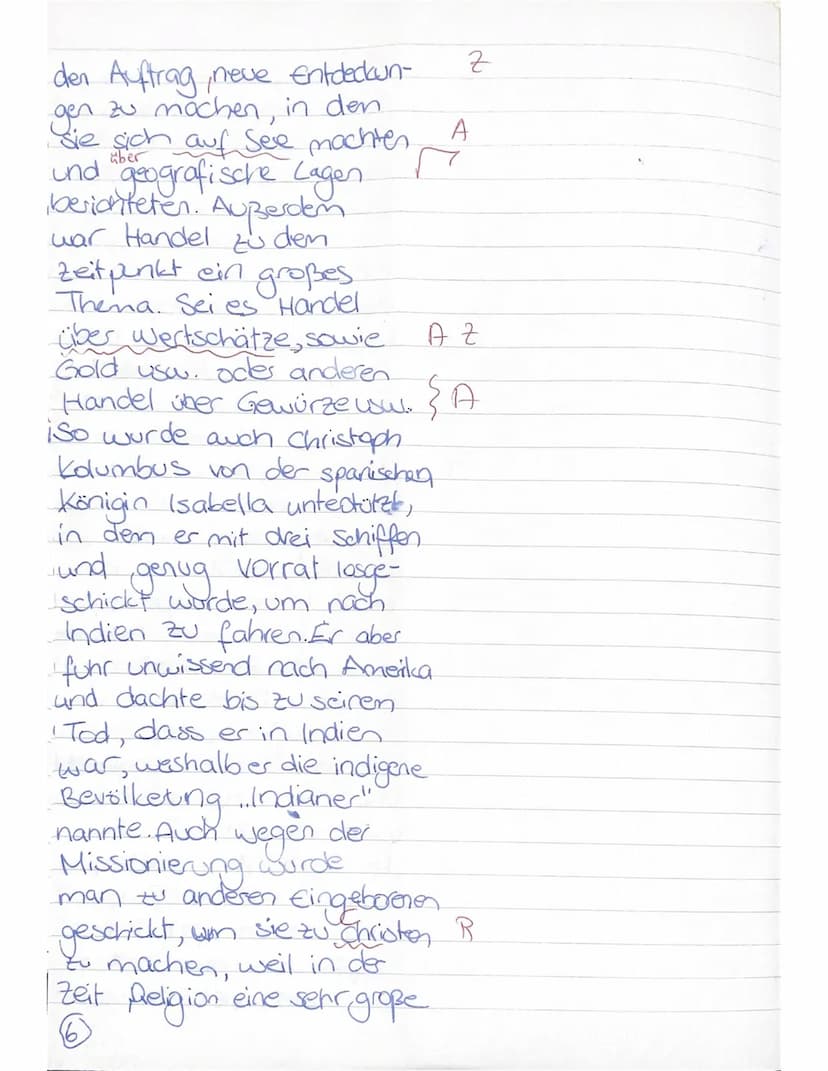 den Auftrag, neue Entdeckun- Z
gen zu machen, in dem
sie sich auf See machten A
über
und geografische Lagen
berichteten. Außerdem
war Handel zu dem
Zeitpunkt ein großes
Thema. Sei es Handel
über Wertschätze, sowie A Z
Gold usw. oder anderen
Handel über Gewürze usw. A
So wurde auch Christoph
Kolumbus von der spanischen
Königin Isabella untestützt,
in dem er mit drei Schiffen
und genug Vorrat losge-
schickt wurde, um nach
Indien zu fahren. Er aber
fuhr unwissend nach Amerika
und dachte bis zu seinem
Tod, dass er in Indien
war, weshalb er die indigene
Bevölkerung „Indianer"
nannte. Auch wegen der
Missionierung wurde
man zu anderen Eingeborenen
geschickt, um sie zu Christen R
zu machen, weil in der
Zeit Religion eine sehr große
6